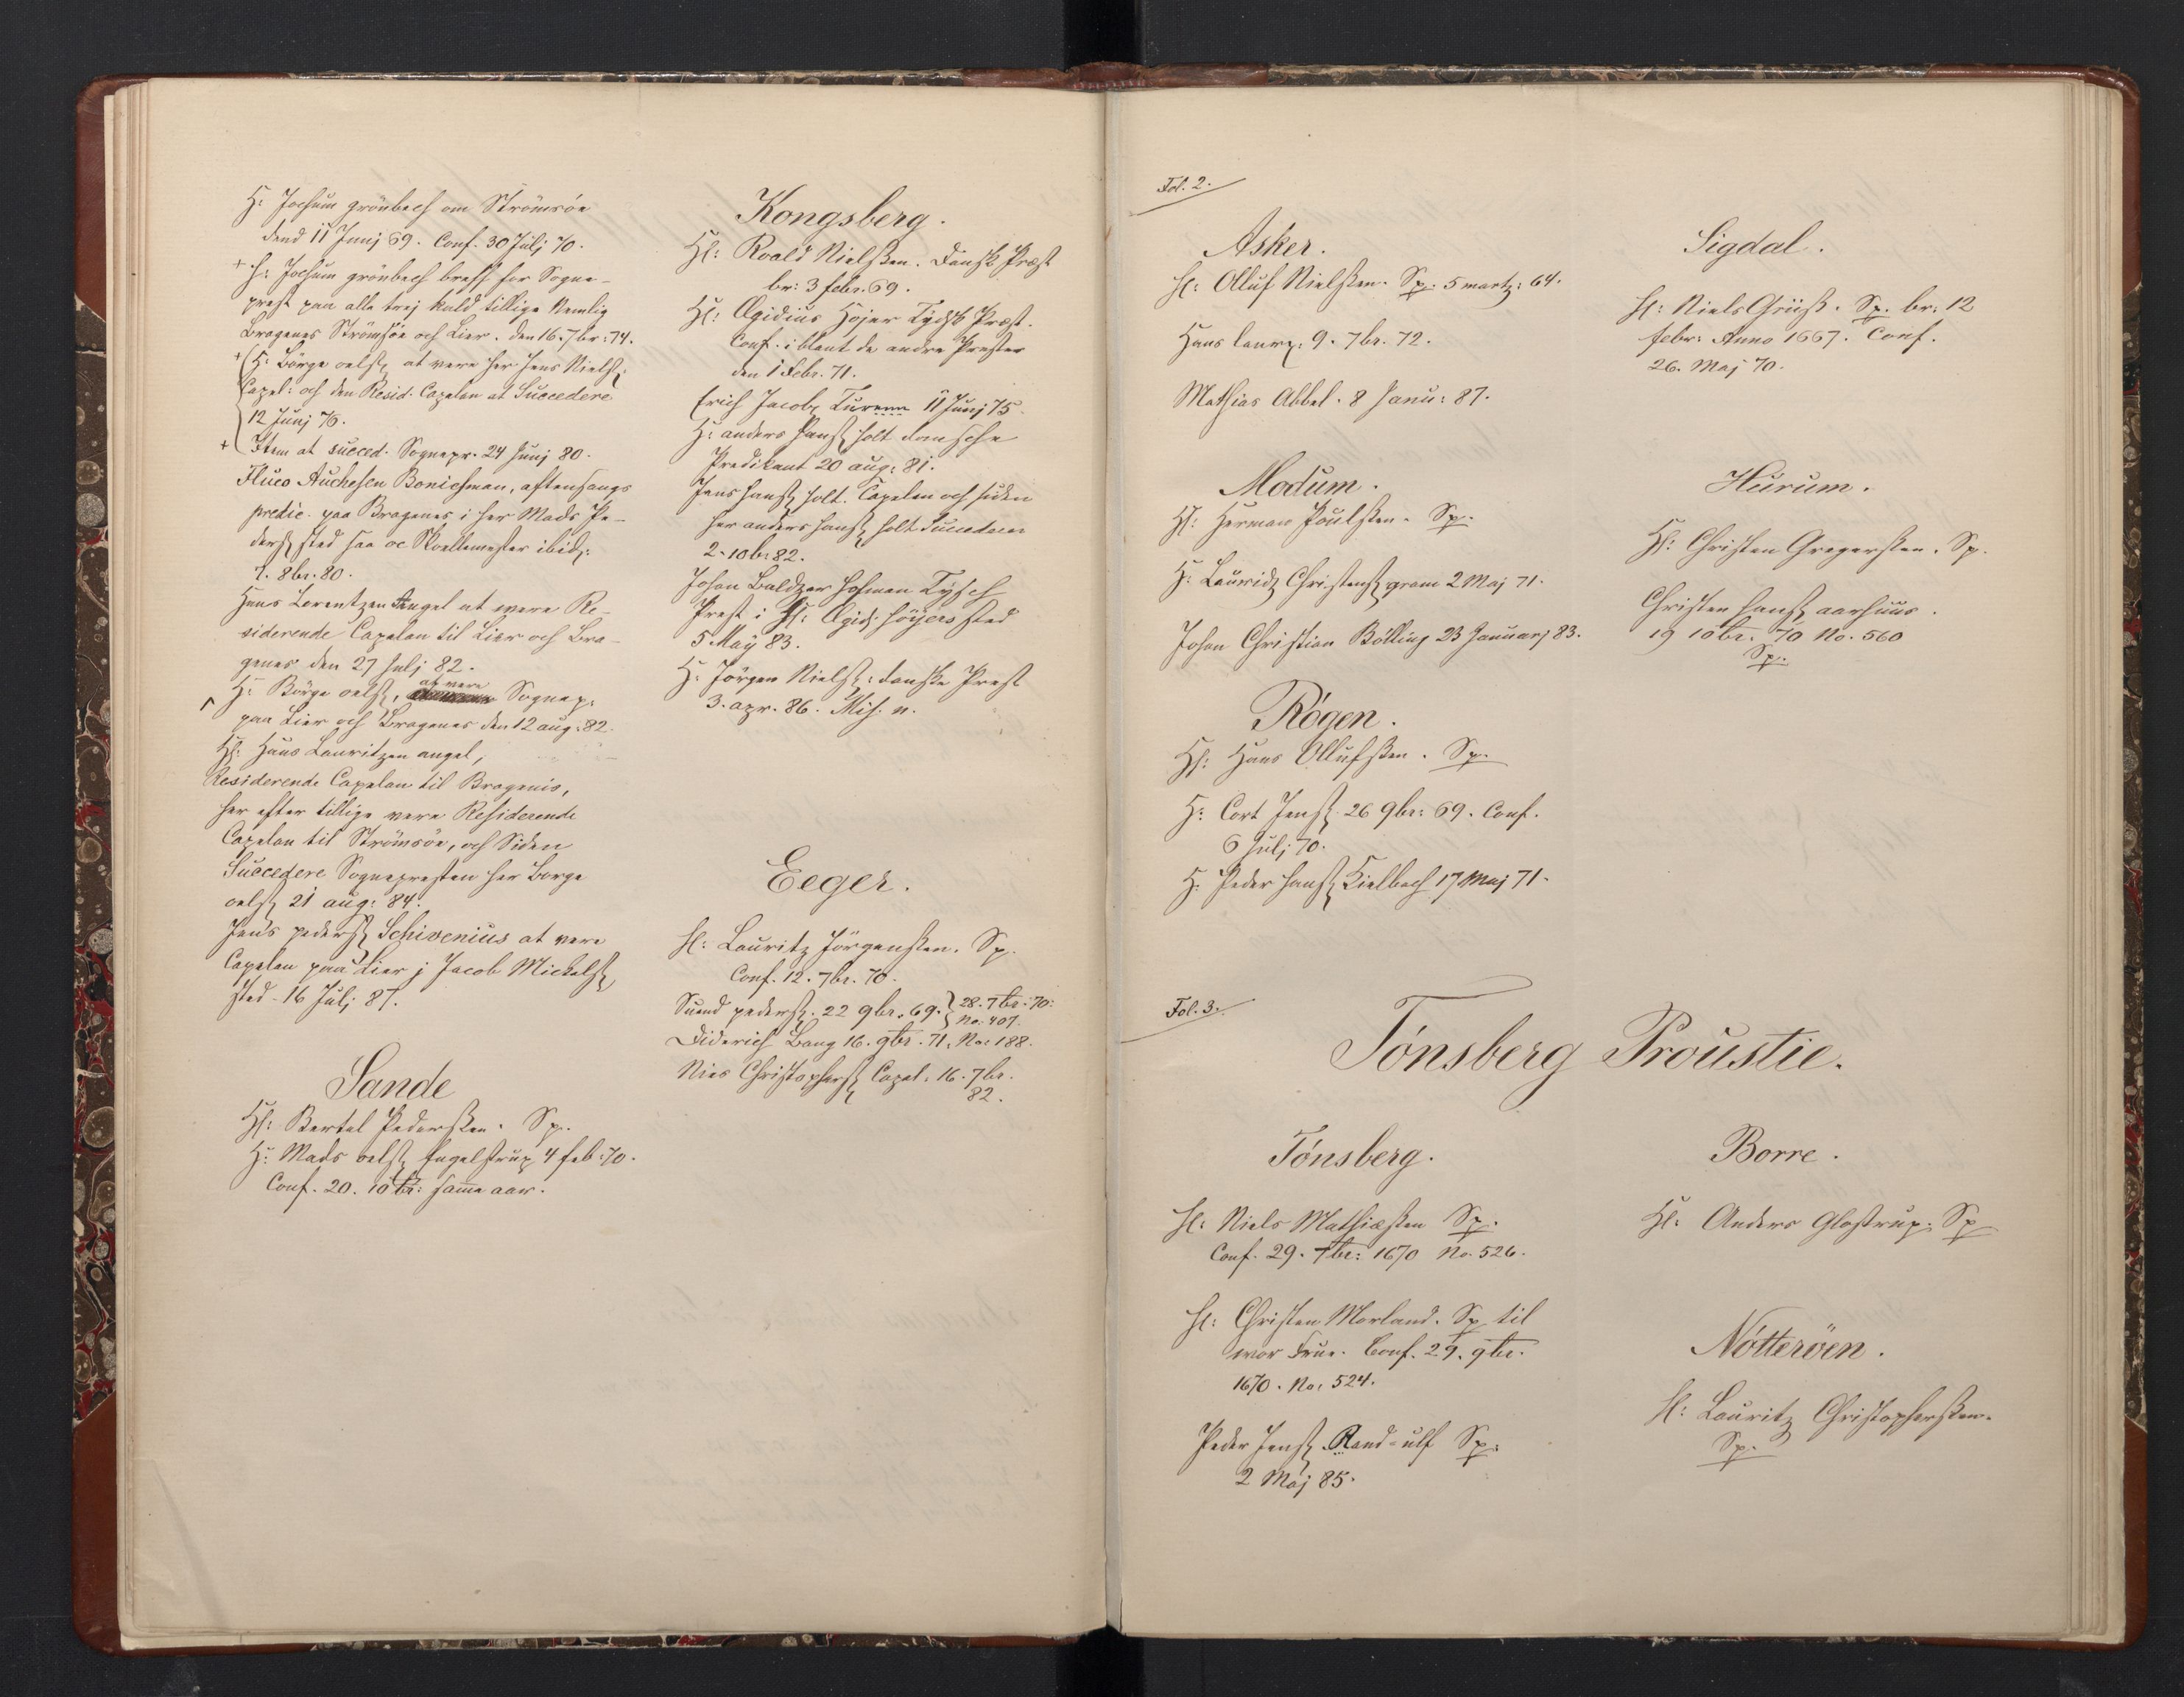 H: Jochum grönbech om Strömsöe
dend 11 Junj 69. Conf. 30 Julj 70.
+ H: Jochum grönbech breff for Sogne-
prest paa alle trej kald tillige Nemlig
Bragenes Strömsöe och Lier. den 16. 7br: 74.
+ H: Börge oelsz, at vere her Jens Nielsz:
Capel: och den Resid: Capelan at Succedere
12 Junj 76.
+ Item at succed. Sognepr. 24 Junj 80.
Fluco Auchesen Bonichman, aftensangs
predic. paa Bragenes i her Mads Pe-
dersz sted saa oc Skollemester ibid:
1. 8br. 80.
Hans Lorentzen Angel at were Re-
siderende Capelan til Lier och Bra-
genes den 27 Julj 82.
H: Börge oelsz, at vere Sognep:
paa Lier och Bragenes den 12 aug: 82.
Hl: Hans Lauritzen angel,
Residerende Capelan til Bragenis,
her efter tillige vere Residerende
Capelan til Strömsöe, och Siden
Succedere Sognepresten her Borge
oelsz 21 aug: 84.
Jens pedersz Schivenius at vere
Capelan paa Lier j Jacob Mickelsz
sted. 16 Julj 87.
Sande
Hl: Bertel Pederssen. Sp.
H: Mads oelsz Engelstrup 4 feb: 70.
Conf. 20. 10br: samme aar.
Kongsberg.
Hl: Roald Nielssen. Dansk Præst
br: 3 febr. 69.
Hl: Ægidius Höjer Tydsk Præst.
Conf. iblant de andre Prester
den 1 Febr. 71.
Erich Jacobz Turenn 11 Junj 75.
H: anders hansz holt dansche
Predikant 20 aug: 81.
Jens hansz holt. Capelan och siden
her anders hansz holt
2. 10b: 82.
Johan Baldzer hofman Tysch
Prest i Hl: Ægidj höyers sted
5 Maij 83.
H: Jörgen Nielsz: danske Prest
3. apr. 86. Mis. n.
Eeger.
Hl: Lauritz Jörgenssen. Sp.
Conf. 12. 7br. 70.
Suend pedersz. 22 9br. 69. } 28. 7br: 70:
No: 407.
Diderich Bang 16. 9br. 71. No: 188.
Niels Christophersz Capel: 16. 7br.
82.
Fol. 2.
Asker.
Hl: Olluf Nielssen. Sp. 5 martz: 64.
Hans laurz: 9. 7br. 72.
Mathias Abbel. 8 Janu: 87.
Modum.
Hl: Herman Poulssen. Sp.
H: Lauridz Christensz gram 2 Maj 71.
Johan Christian Bölling 23 Januarj 83.
Rögen.
Hl: Hans Ollufssen. Sp.
H: Cort Jensz. 26 9br: 69. Conf.
6 Julj 70.
H: Peder hansz Kielbech 17 Maj 71.
Sigdal.
Hl: Niels Grüss. Sp. br: 12
febr: Anno 1667. Conf.
26. Maj 70.
Hurum.
Hl: Christen Gregerssen. Sp.
Christen hansz aarhuus.
19 10br. 70 No. 560
Sp.
Fol. 3.
Tönsberg Proustie.
Tönsberg.
Hl: Niels Mathiassen Sp.
Conf. 29. 7br: 1670 No. 526.
Hl: Christen Morland. Sp til
wor Frue. Conf. 29. 9br.
1670. No. 524.
Peder Jensz Rand-ulf Sp:
2 Maj 85.
Borre.
Hl: Anders Glostrup. Sp
Nötteröen.
Hl: Lauritz Christopherssen.
Sp.